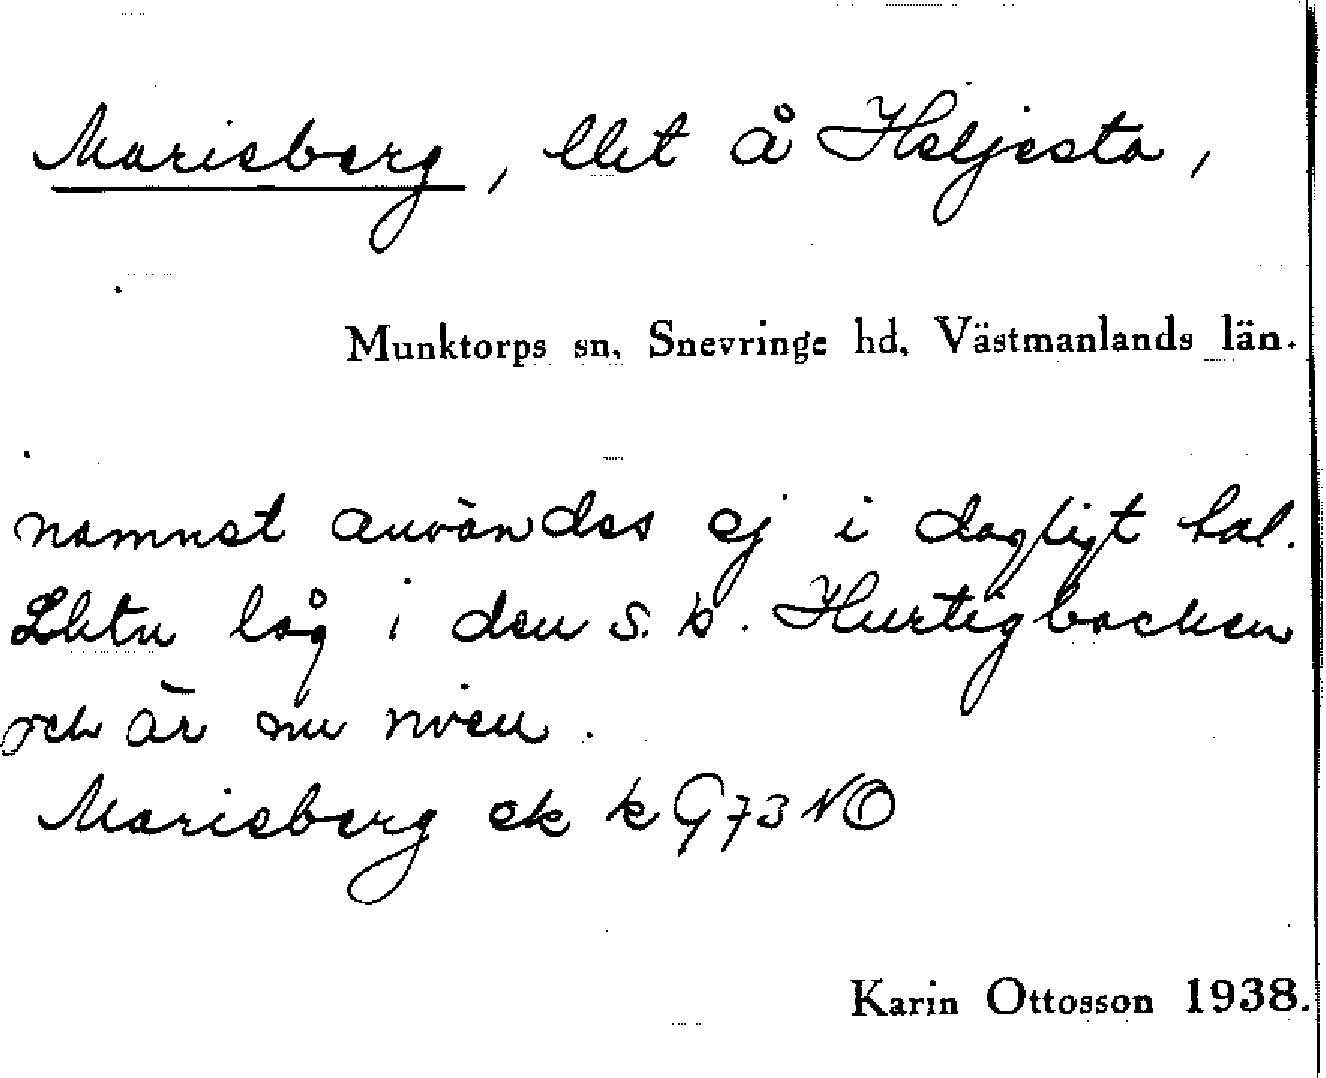 Marieberg, llet å Heljesta,
Munktorps sn, Snevringe hd, Västmanlands län.
namnet användes ej i dagligt tal.
Lhtn låg i den s.k. Hurtigbacken
och är nu riven.
Marieberg ek k G73 NO
Karin Ottosson 1938.